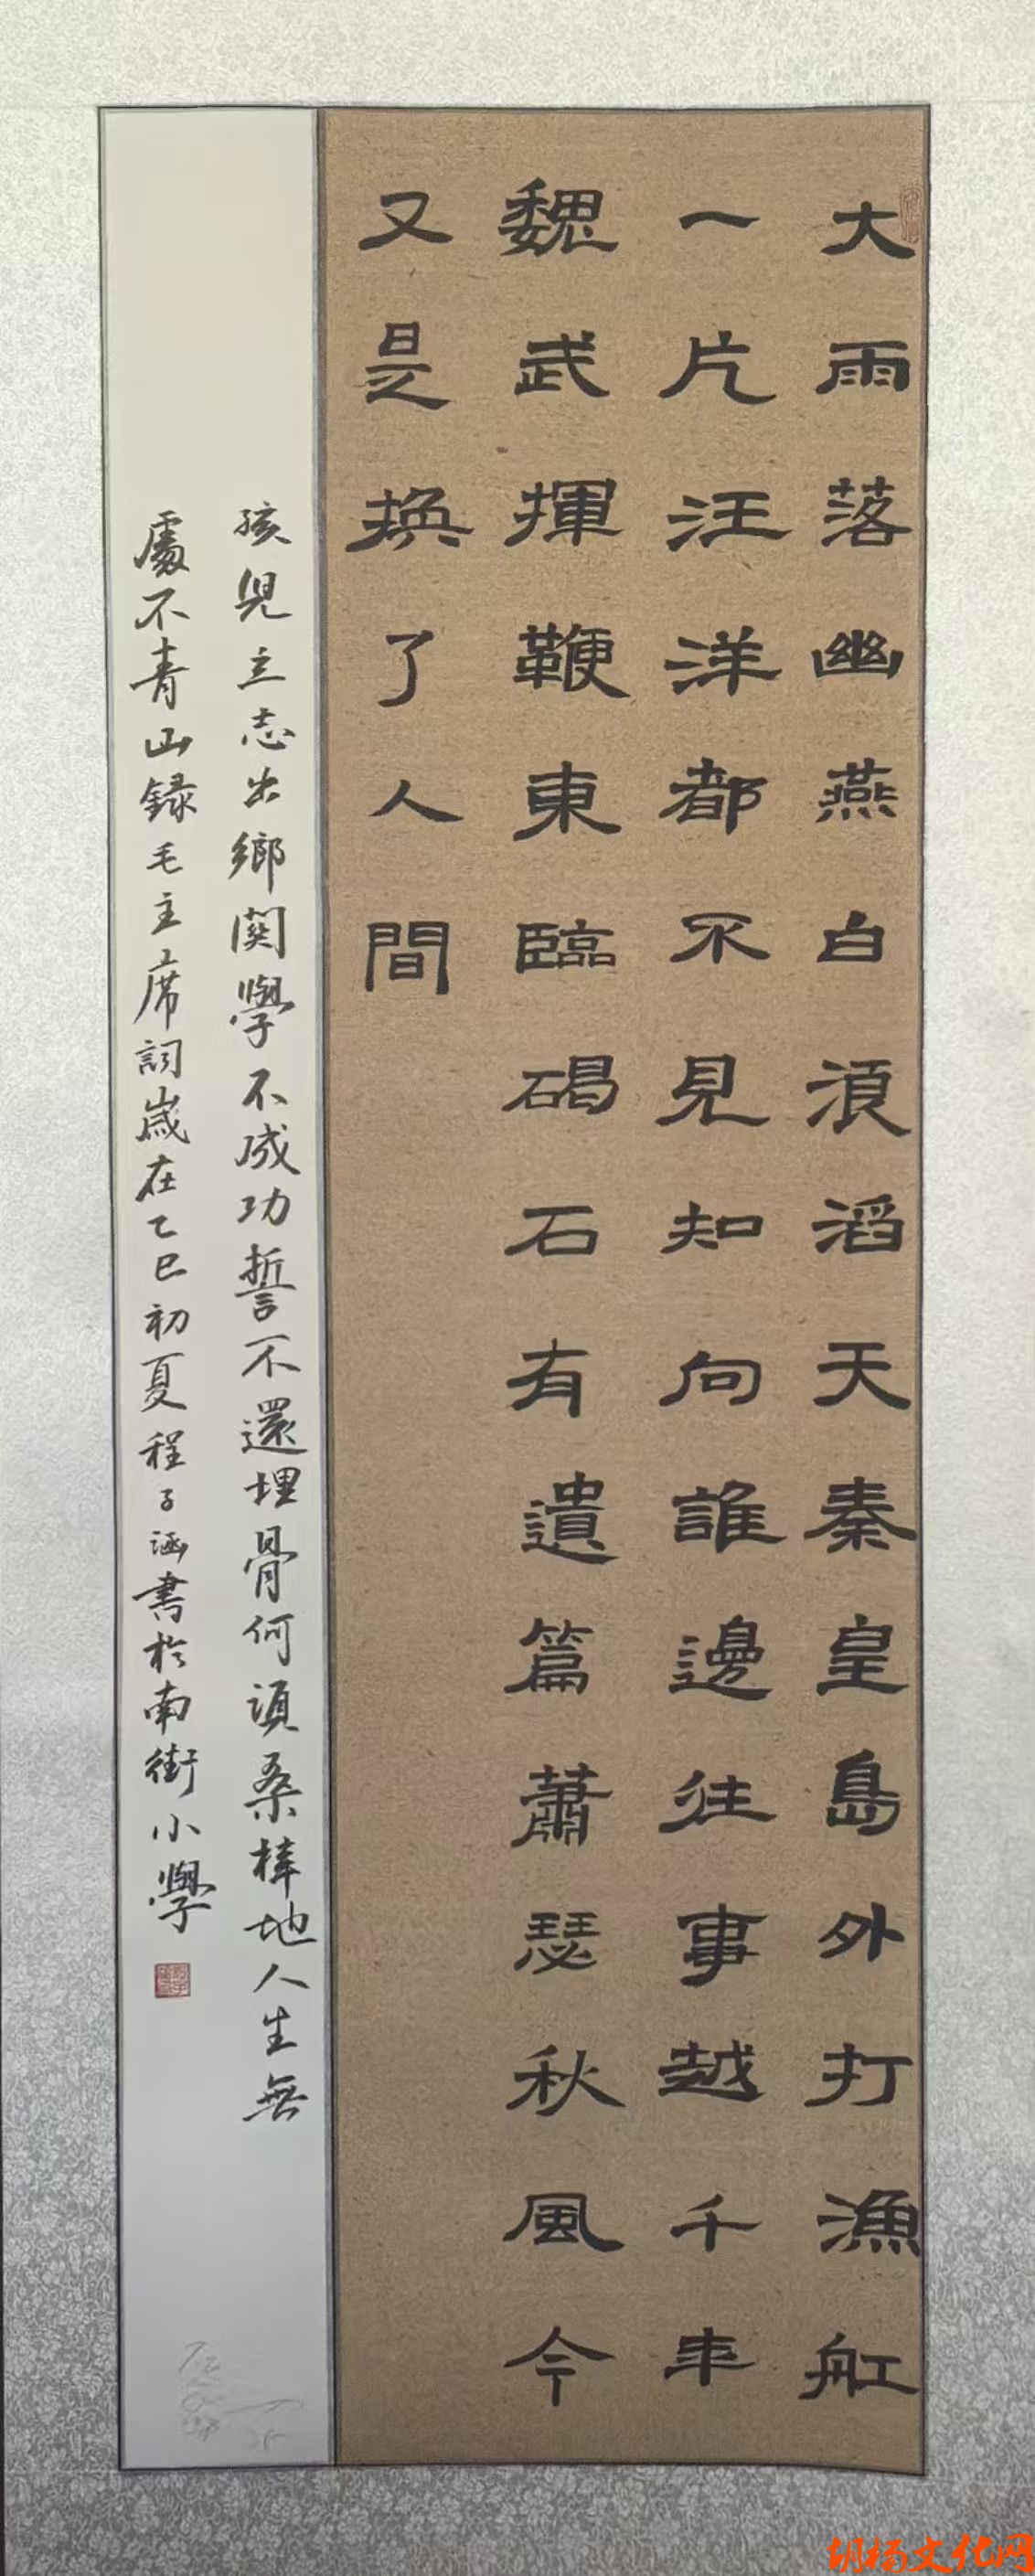 大雨落幽燕白浪滔天秦皇島外打漁舡
一片汪洋都不見知向誰邊往事越千年
魏武揮鞭東臨碣石有遺篇蕭瑟秋風今
又是換了人間
孩兒立志出鄉關學不成功誓不還埋骨何須桑梓地人生無
處不青山録毛主席詞歲在乙巳初夏程子涵書於南街小學
胡杨文化网